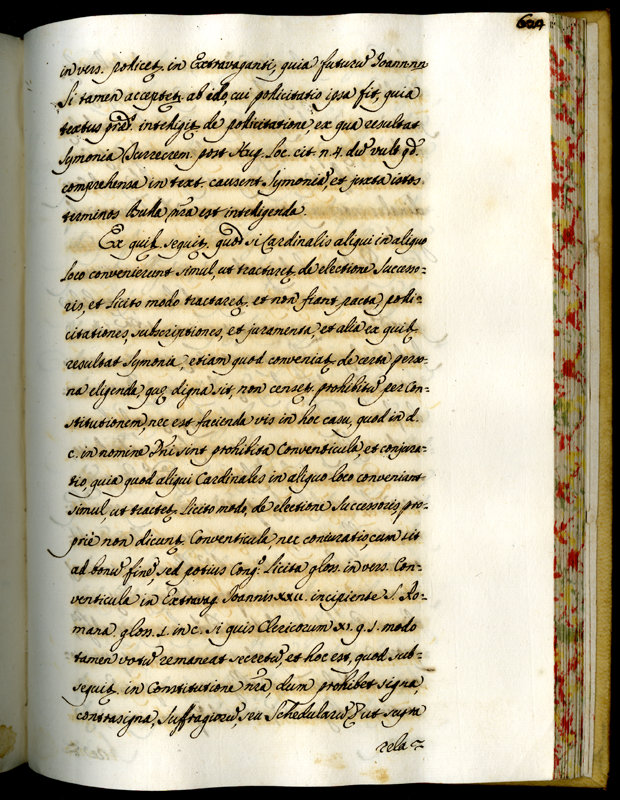 in vers. pollicet. in Extravaganti, quia futurũ Joann
Si tamen acceptet. ab illo, cui pollicitatio ipsa fit, quia
textus intelligit. de pollicitatione ex qua resultat
Symonia Turrecrem. post Hug. loc. cit. n. 4. dũ vult qđ.
comprehensa in text. causent Symoniã, et juxta istos
terminos Bulla ñra est intelligenda.
Ex quib. sequit. quod si Cardinalis aliqui in aliquo
loco convenierunt simul, ut tractaret. de electione Successo-
ris, et licito modo tractaret. et non fiant pacta polli-
citationes, subscriptiones, et juramenta, et alia ex quib.
resultat Symonia, etiam quod conveniat. de certa perso-
na eligenda, quę digna sit, non censet. prohibitũ per Con-
stitutionem, nec est facienda vis in hoc casu, quod in d.
c. in nomine Dñi sint prohibita Conventicula, et conjura-
tio, quia quod aliqui Cardinales in aliquo loco conveniant
simul, ut tractet. licito modo, de electione Successoris, pro-
prie non dicunt. Conventicula, nec coniuratio, cum sit
ad bonũ finẽ, sed potius Cong.o licita gloss. in vers. Con-
venticula in Extravag. Joannis XXII. incipiente S. Ro-
mana. gloss. 1. in c. Si quis Clericorum XI. q. 1. modo
tamen votũ remaneat secretũ, et hoc est, quod sub-
sequit. in Constitutione ñra dum prohibet signa,
contrasigna, suffragiorũ, seu Schedularũ ut supra
rela-